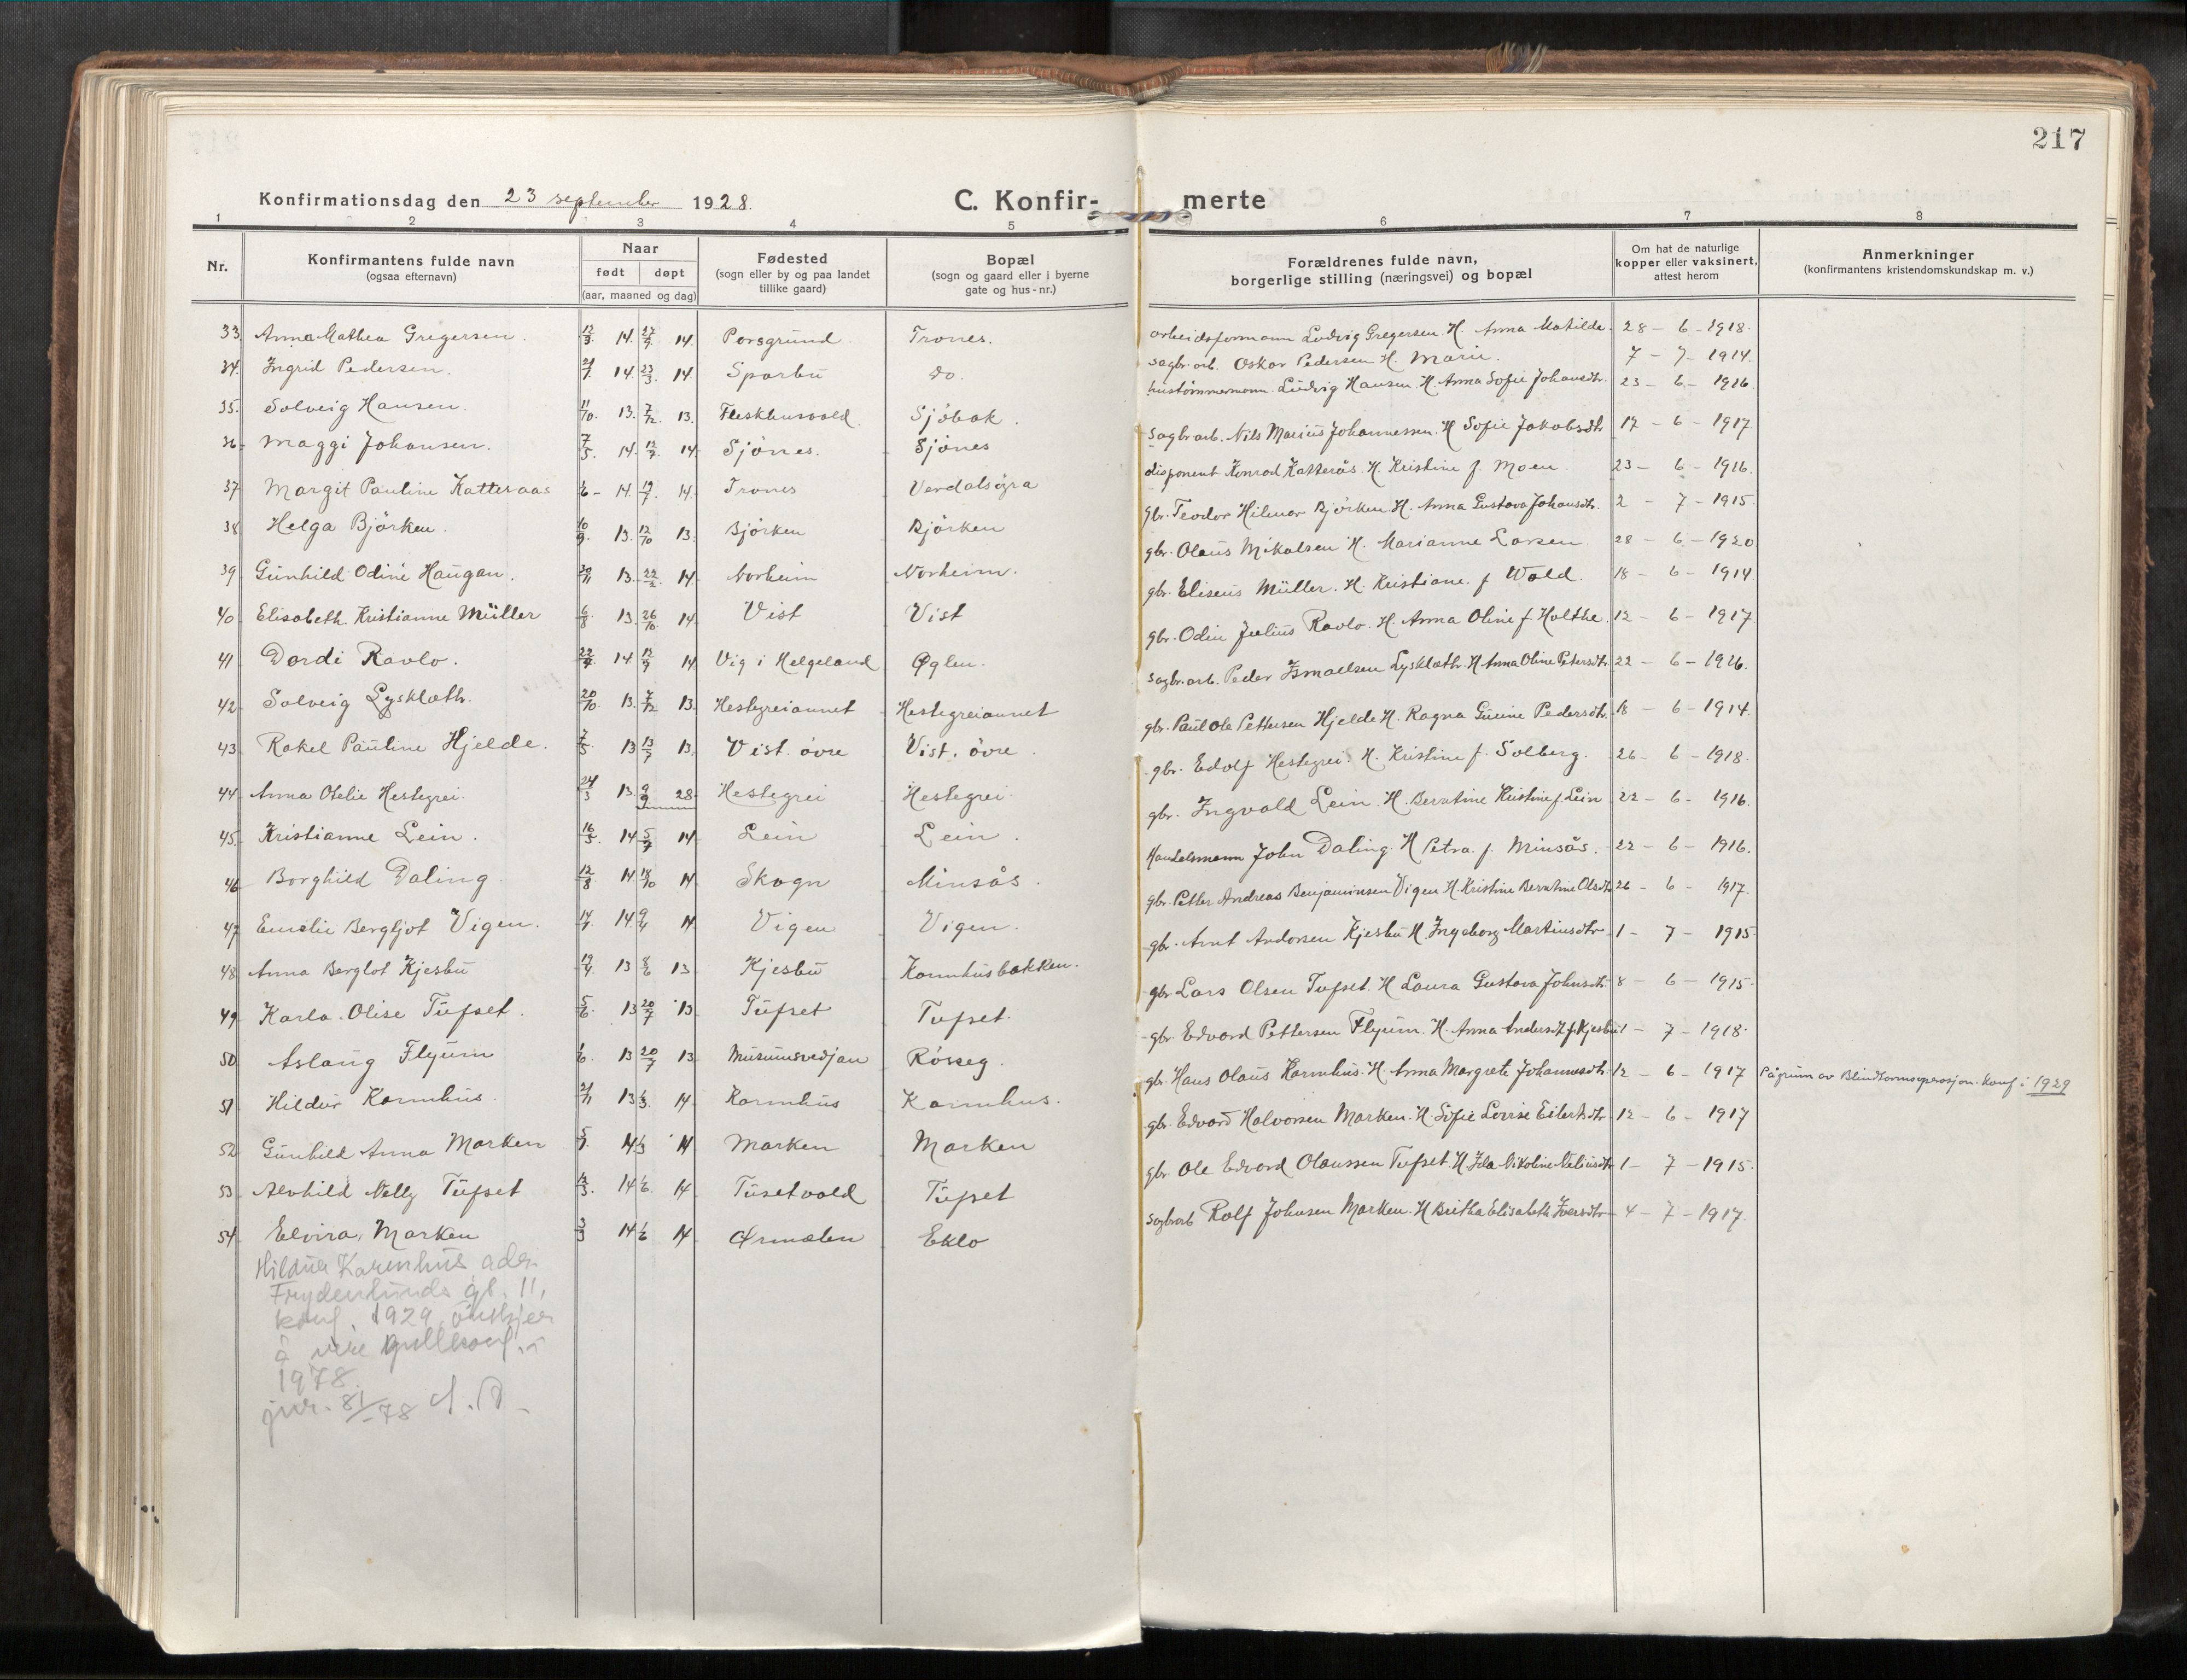 217
Konfirmationsdag den 23 september 1928.
C. Konfir- merte
1 2 3 4 5 6 7 8
Nr. | Konfirmantens fulde navn (ogsaa efternavn) | Naar født døpt (aar, maaned og dag) | Fødested (sogn eller by og paa landet tillike gaard) | Bopæl (sogn og gaard eller i byerne gate og hus-nr.) | Forældrenes fulde navn, borgerlige stilling (næringsvei) og bopæl | Om hat de naturlige kopper eller vaksinert, attest herom | Anmerkninger (konfirmantens kristendomskundskap m. v.)
33. Anna Mathea Gregersen. 14. 14. Porsgrund. Trones. arbeidsformann Ludvig Gregersen. H. Anna Matilde. 28 - 6 - 1918.
34. Ingrid Pedersen. 14. 23/3. 14. Sparbu do. sagbr.arb. Oskar Pedersen H. Marie. 7 - 7 - 1914.
35. Solveig Hansen. 11/10. 13. 7/12. 13. Sjöbak. Ludvig Hansen. H. Anna Sofie Johansdtr. 23 - 6 - 1916.
36. Maggi Johansen. 7/5. 14. 12/7. 14. Sjönes. Sjönes sagbr.arb. Nils Marius Johannessen. H Sofie Jakobsdtr 17 - 6 - 1917.
37 Margit Pauline Katteraas 14. 19/7. 14. Trones Verdalsöra disponent Konrad Katterås. H. Kristine f. Moen. 23 - 6 - 1916.
38 Helga Björken. 10/9. 13. 12/10 13. Björken Björken gbr. Teodor Hilmar Björken H. Anna Gustava Johansdtr. 2 - 7 - 1915.
39 Gunhild Odine Haugan. 13. 22/2. 14. Norheim Norheim. gbr. Olaus Mikalsen H. Marianne Larsen 28 - 6 - 1920.
40. Elisabeth Kristianne Müller 6/8 13. 26/10. 14. Vist Vist gbr. Eliseus Müller. H. Kristiane. f Wold. 18 - 6 - 1914.
41 Dordi Ravlo. 14 14 Vig i Helgeland Öglen. gbr. Odin Julius Ravlo. H. Anna Oline f. Holthe. 12 - 6 - 1917.
42. Solveig Lysklæth. 20/10. 13. 7/12 13. Hestegreiaunet Hestegreiaunet sagbr.arb. Peder Ismaelsen Lysklæth. H Anna Oline Petersdtr. 22 - 6 - 1926.
43 Rakel Pauline Hjelde. 7/5 13 13/7 13. Vist. övre Vist, övre. gbr. Paul Ole Pettersen Hjelde H. Ragna Gurine Pedersdtr. 18 - 6 - 1914.
44. Anna Otelie Hestegrei. 24/3 13. 9/9 28. Hestegrei Hestegrei. gbr. Edolf Hestegrei. H. Kristine f. Solberg. 26 - 6 - 1918.
45. Kristianne Lein. 14 5/7 14 Lein Lein. gbr. Ingvald Lein. H. Berntine Kristine f. Lein 22 - 6 - 1916.
46 Borghild Daling. 12/8 14. 18/10 14 Skogn Minsås. Handelsmann John Daling. H Petra. f. Minsås. 22 - 6 - 1916.
47 Emelie Bergljot Vigen. 14. 14 Vigen Vigen. gbr. Petter Andreas Benjaminsen Vigen H. Kristine Berntine Olsdtr. 26 - 6 - 1917.
48 Anna Berglot Kjesbu 13 8/6 13 Kjesbu Karmhusbakken. gbr. Arnt Andorsen Kjesbu H. Ingeborg Martinsdtr 1 - 7 - 1915.
49 Karla. Olise Tufset. 5/6. 13 20/7 13. Tufset Tufset. gbr. Lars Olsen Tufset. H Laura Gustava Johnsdtr. 8 - 6 - 1915.
50 Aslaug Flyum 13 20/7 13. Musumsvedjan Rösseg. gbr. Edvard Pettersen Flyum. H. Anna Andersdt f. Kjesbu 1 - 7 - 1918.
51 Hildur Karmhus. 21/11 13 14 Karmhus Karmhus. gbr. Hans Olaus Karmhus. H. Anna Margrete Johannesdtr. 12 - 6 - 1917 På grunn av Blindtarmsoperasjon. konf i 1929
52 Gunhild Anna Marken 14 14 Marken Marken gbr. Edvard Halvorsen Marken. H. Sofie Lovise Eilertsdtr 12 - 6 - 1917
53 Alvhild Nelly Tufset 14 14 Tusetvald Tufset gbr. Ole Edvard Olaussen Tufset. H Ida Nikoline Neliusdtr 1 - 7 - 1915.
54 Elvira, Marken 3/3 14 14 Ørmælen Eklo sagbrarb Rolf Johnsen Marken. H Britha Elisabeth Iversdtr 4 - 7 - 1917.
Hildur Karmhus adr.
Frydenlunds gt. 11,
konf. 1929, önskjer
å vere gullkonf. i
1978.
jnr. 81/78